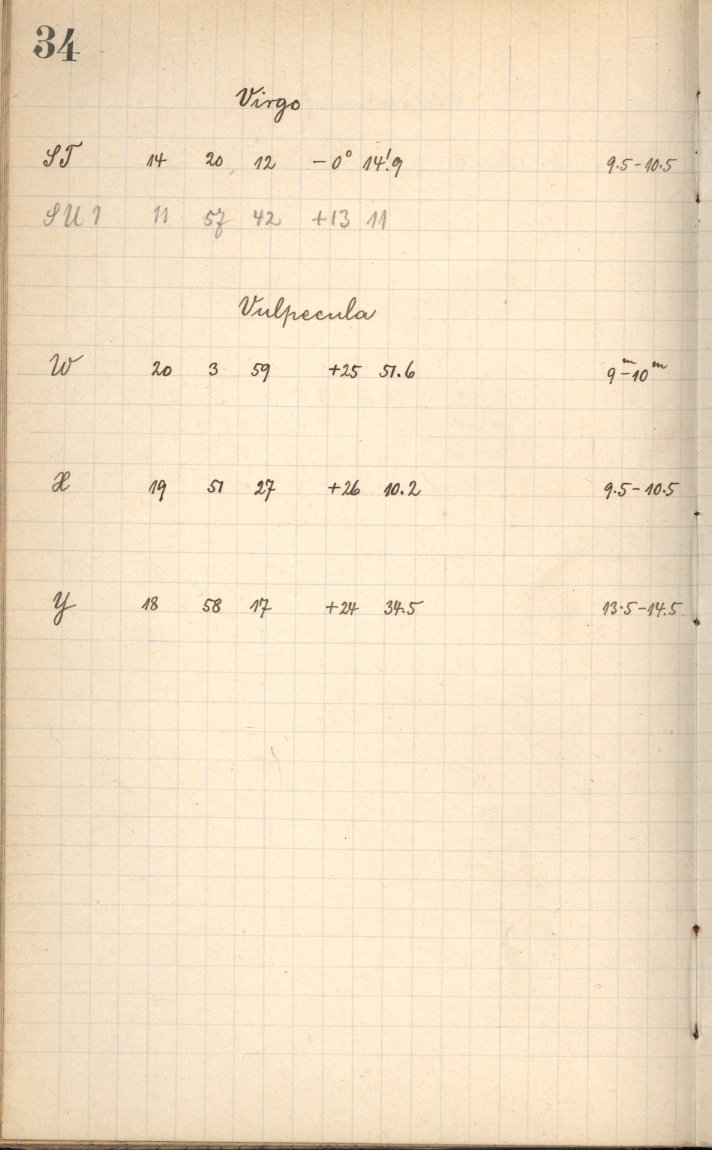 34
Virgo
ST 14 20 12 −0° 14'.9 9.5–10.5
SU? 11 57 42 +13 11
Vulpecula
W 20 3 59 +25 51.6 9ᵐ–10ᵐ
X 19 51 27 +26 10.2 9.5–10.5
Y 18 58 17 +24 34.5 13.5–14.5